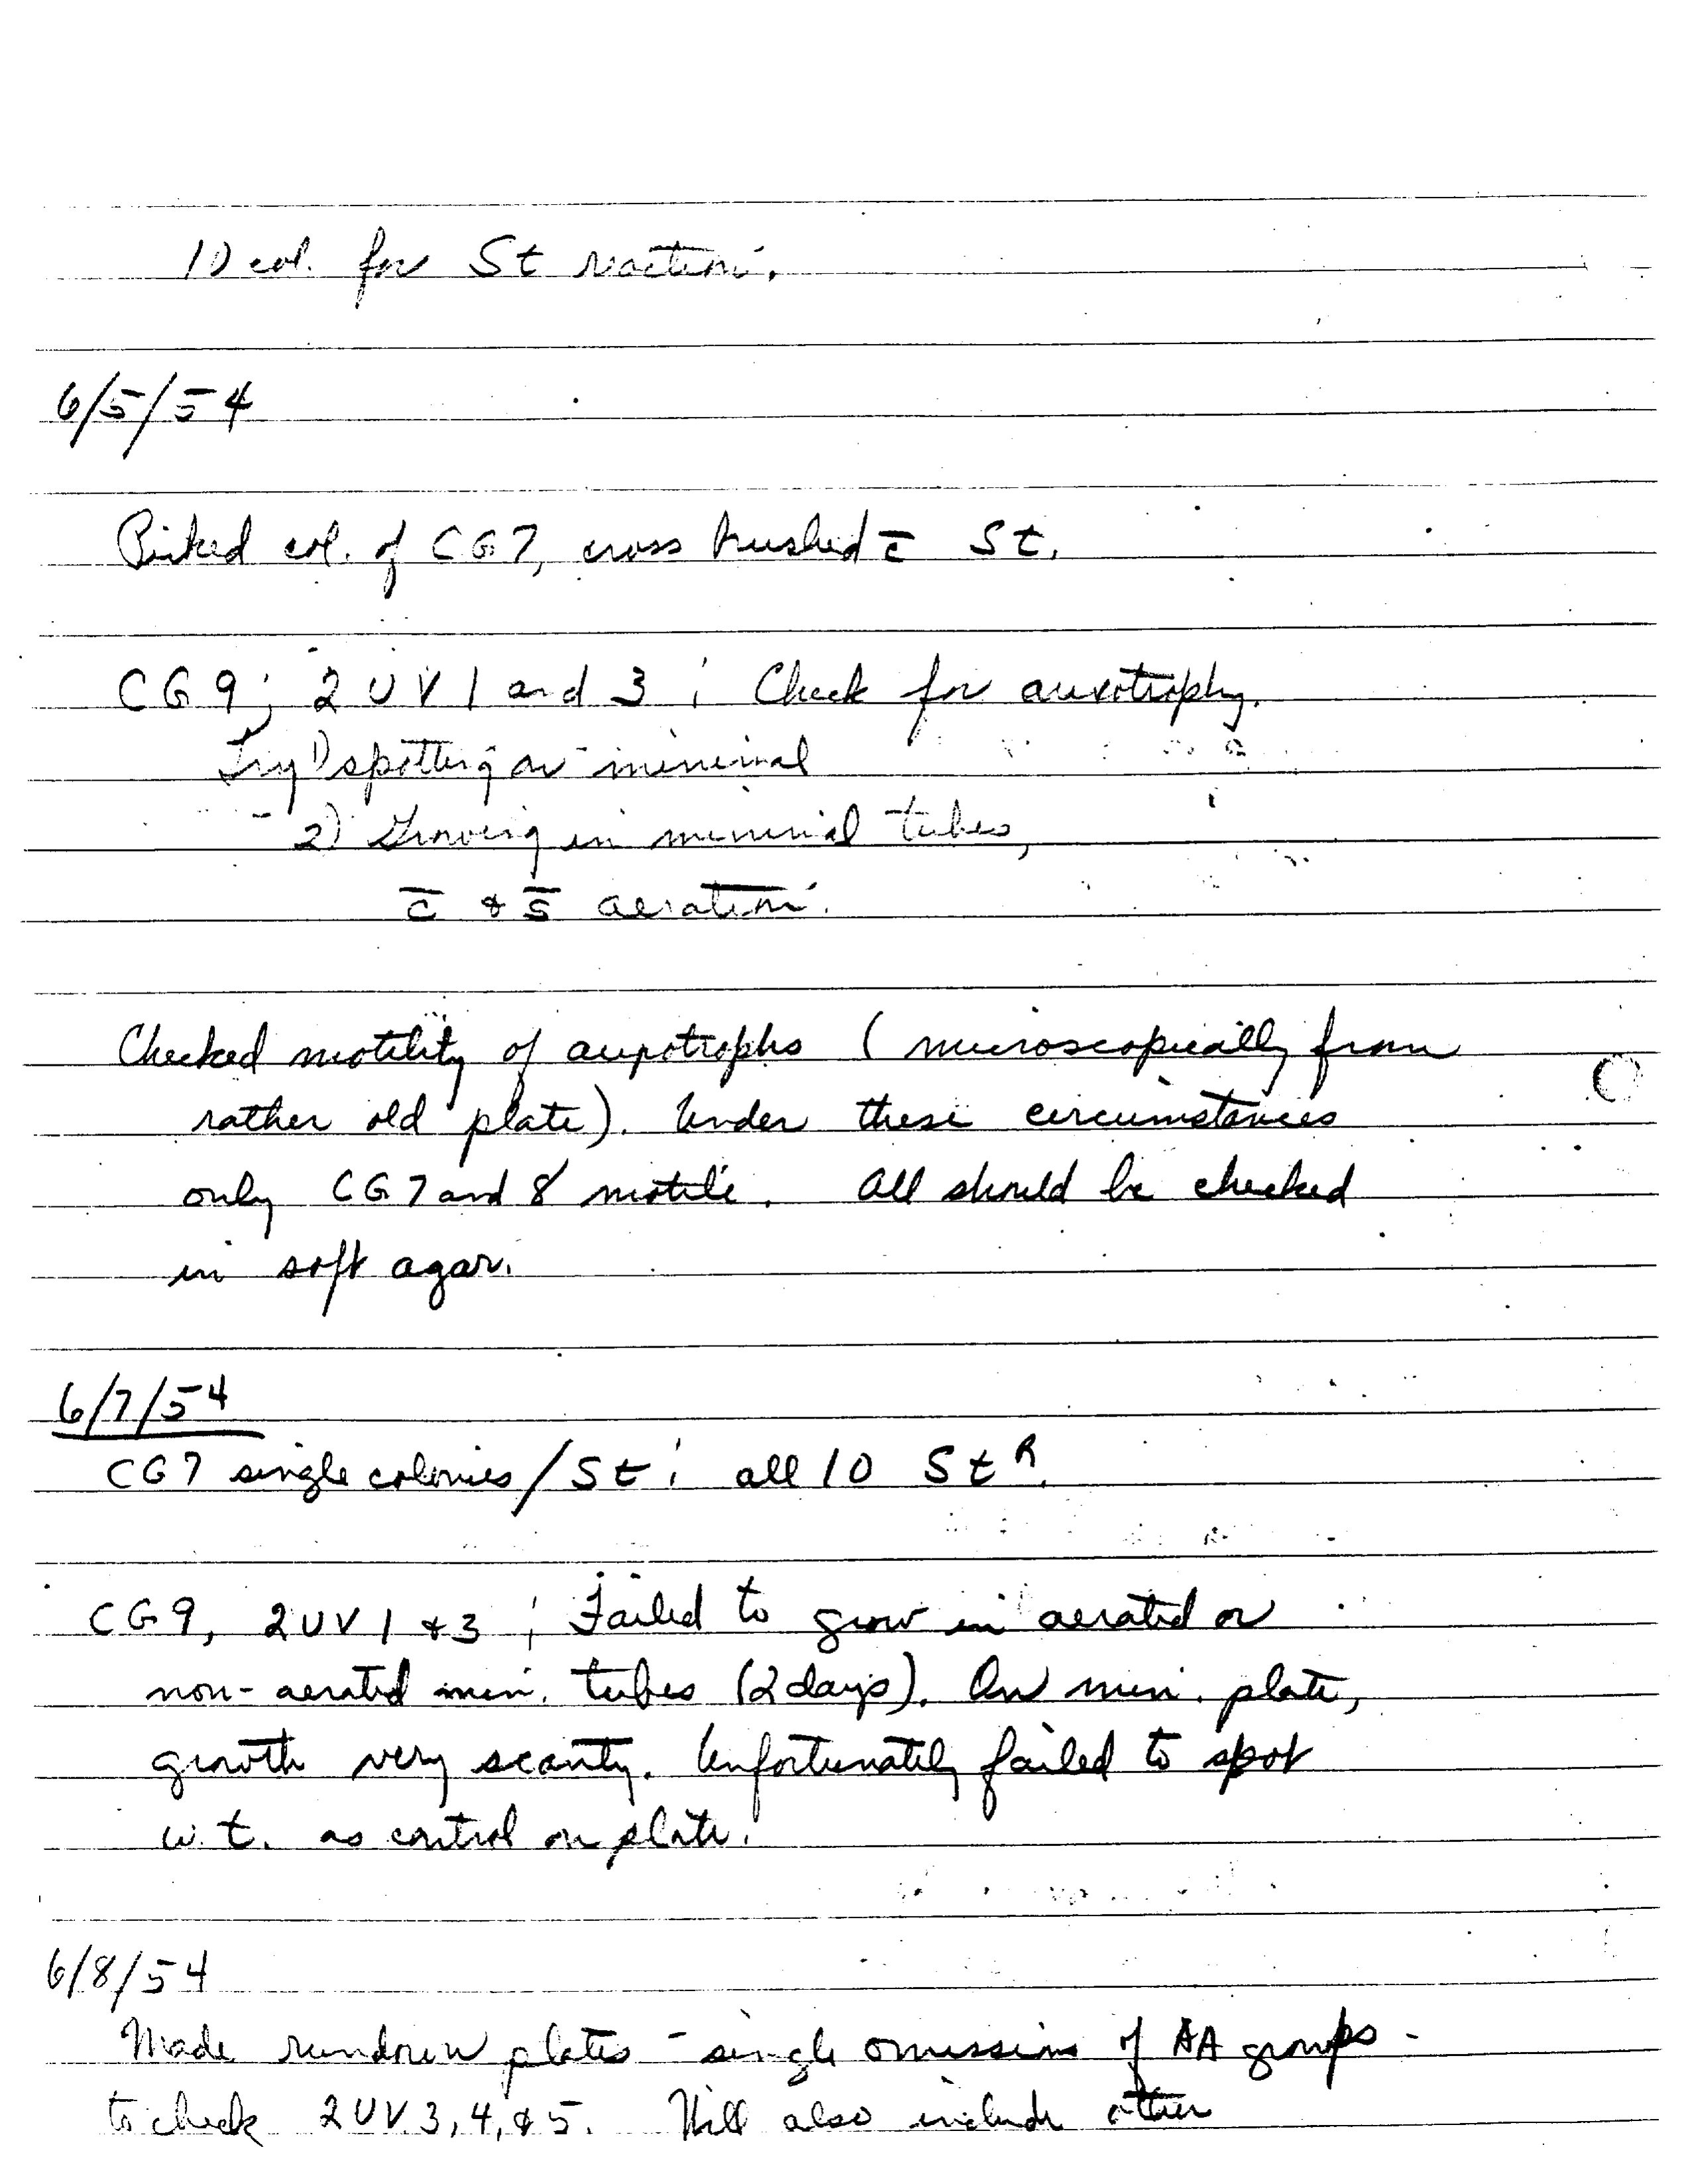 10 col. for St reaction.
6/5/54
Picked col. of CG7, cross brushed c̄ St.
CG9; 2UV1 and 3; Check for auxotrophy.
Try 1) spotting on minimal
2) Growing in minimal tubes,
c̄ & s̄ aeration.
Checked motility of auxotrophs (microscopically from
rather old plate). Under these circumstances
only CG7 and 8 motile. All should be checked
in soft agar.
6/7/54
CG7 single colonies/St; all 10 St^R.
CG9, 2UV1 & 3; Failed to grow in aerated or
non-aerated min. tubes (2 days). On min. plate,
growth very scanty. Unfortunately failed to spot
w.t. as control on plate.
6/8/54
Made rundown plates - single omissions of AA groups -
to check 2UV3, 4, & 5. Will also include other